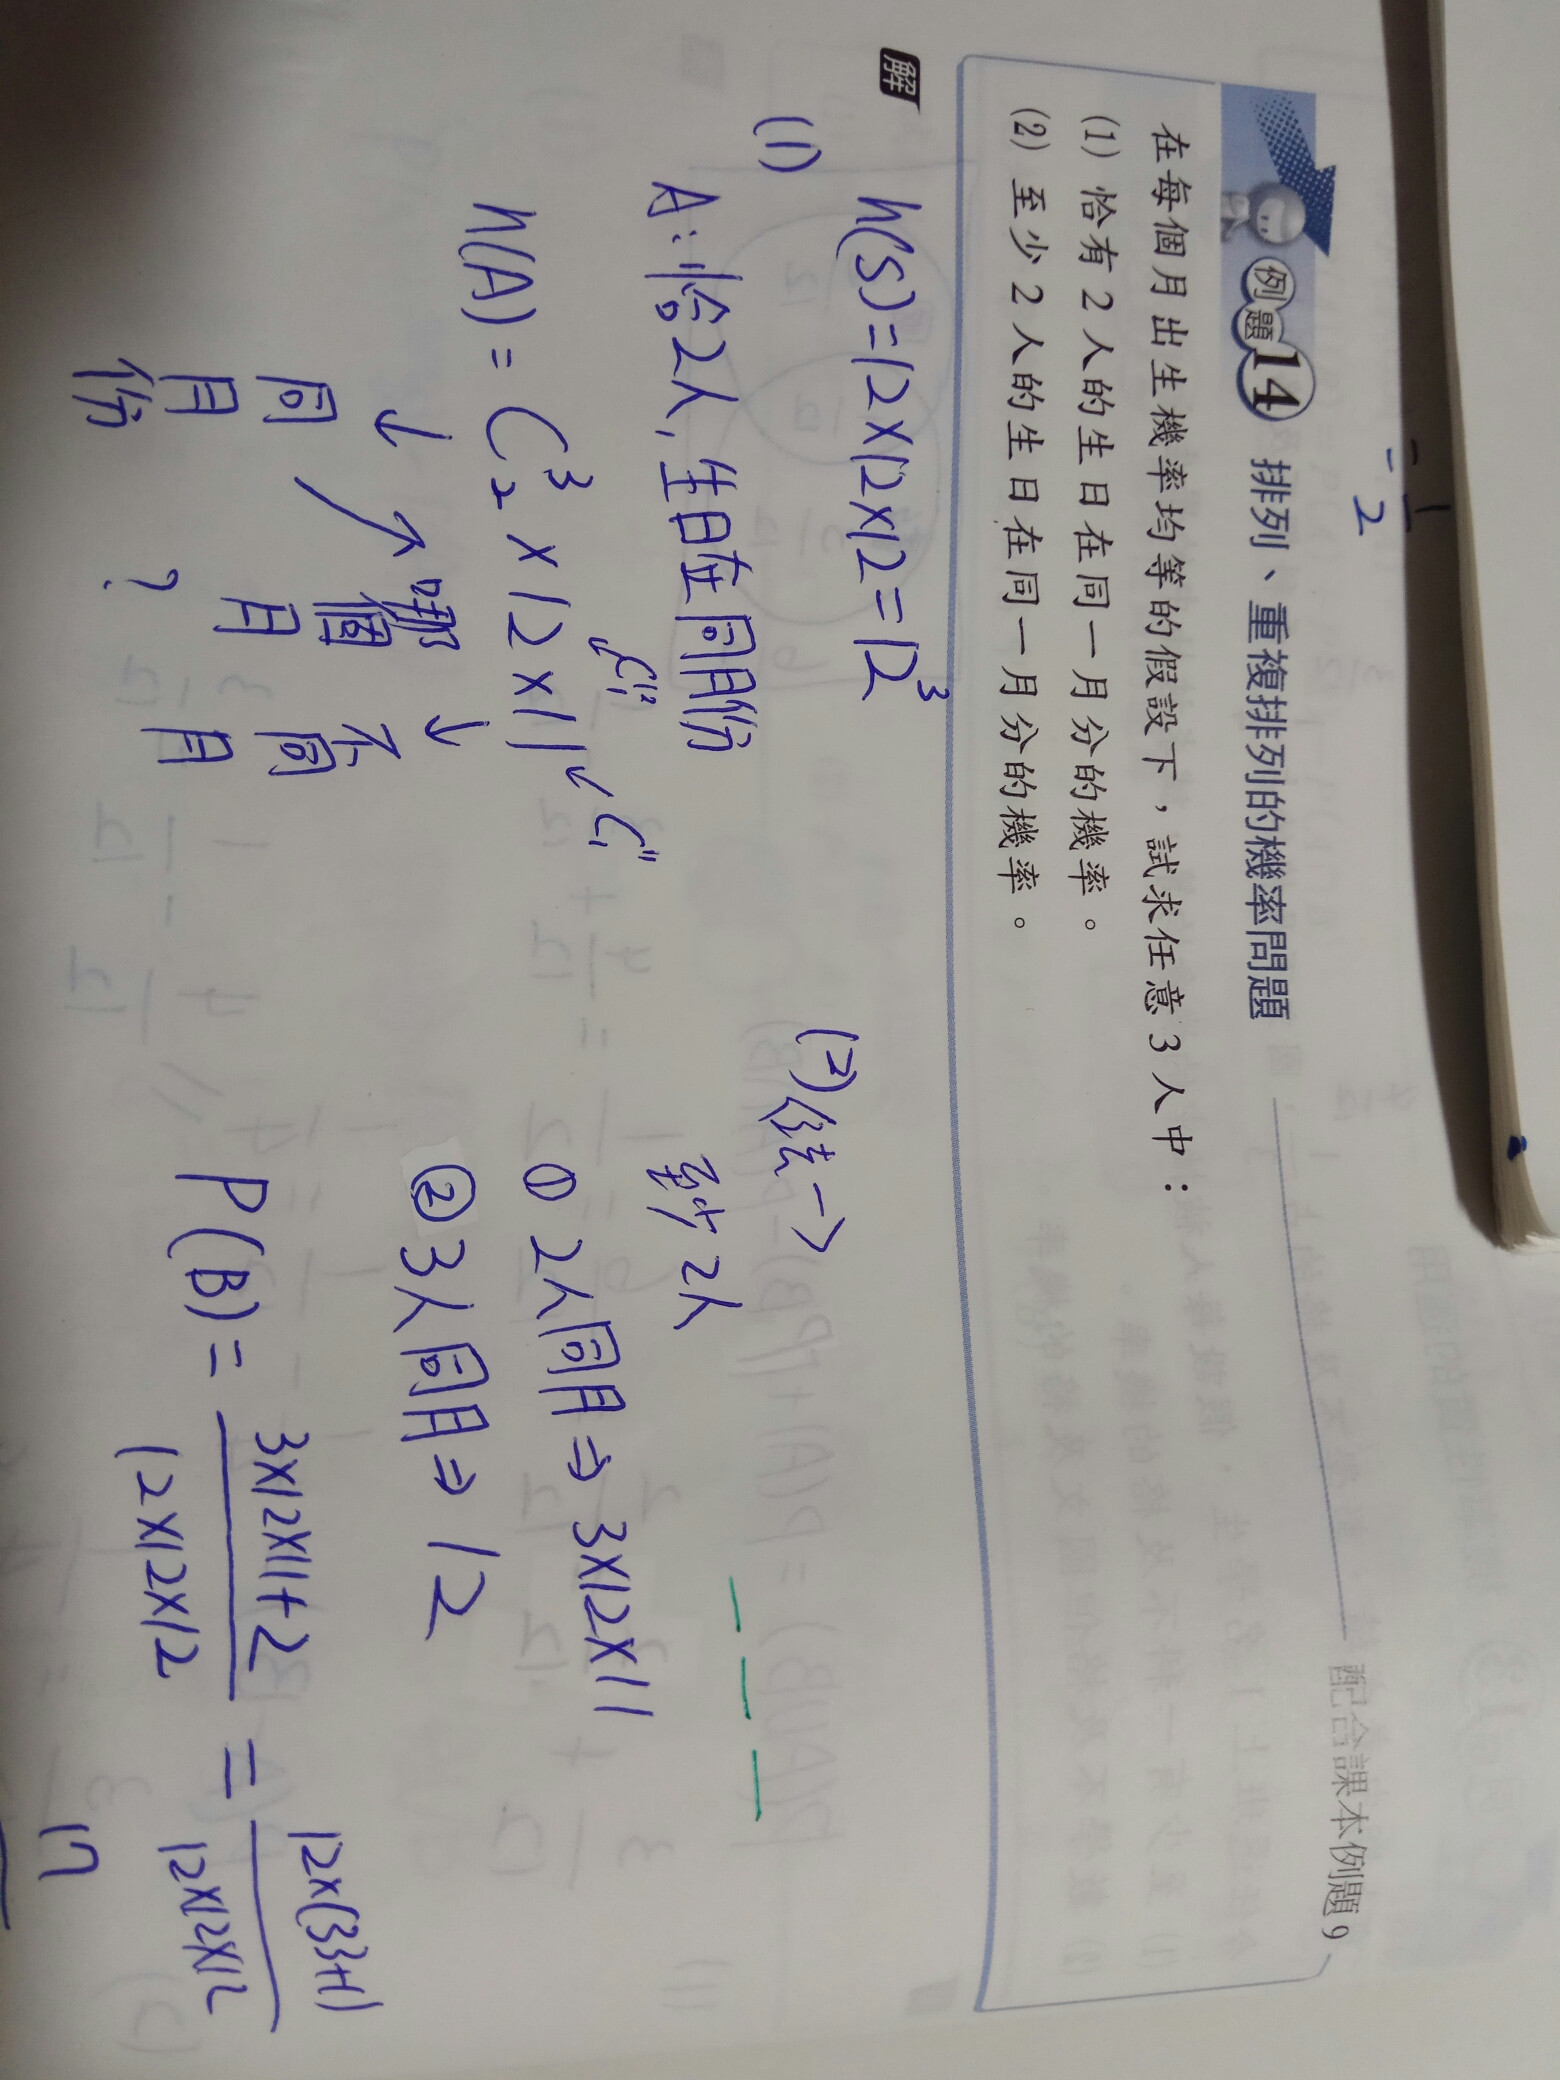 -1/2
例題14 排列、重複排列的機率問題
配合課本例題9
在每個月出生機率均等的假設下，試求任意3人中：
(1) 恰有2人的生日在同一月分的機率。
(2) 至少2人的生日在同一月分的機率。
解
(1)
n(S)=12×12×12=12³
A:恰2人,生日在同月份
n(A)=C³₂×12×11
↙C¹²₁
↙C¹¹₁
↓
同月份
↗
哪個月?
↓
不同月
(2)〈法一〉
至少2人
① 2人同月⇒3×12×11
② 3人同月⇒12
P(B)=(3×12×11+2)/(12×12×12)=12×(33+1)/(12×12×12)
17